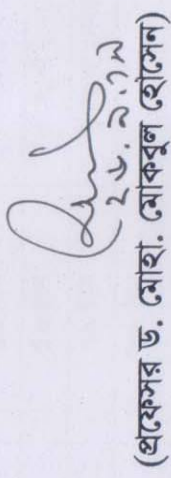 ২৮.৯.১৭
(প্রফেসর ড. মোহা. মোকবুল হোসেন)